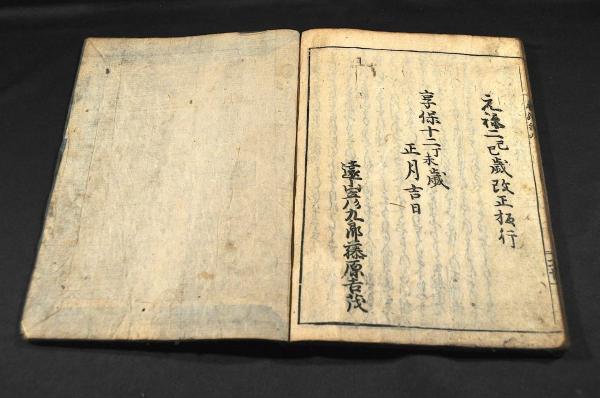 元禄二己巳歳改正板行
享保十二丁未歳
正月吉日
遠山彦九郎藤原吉茂